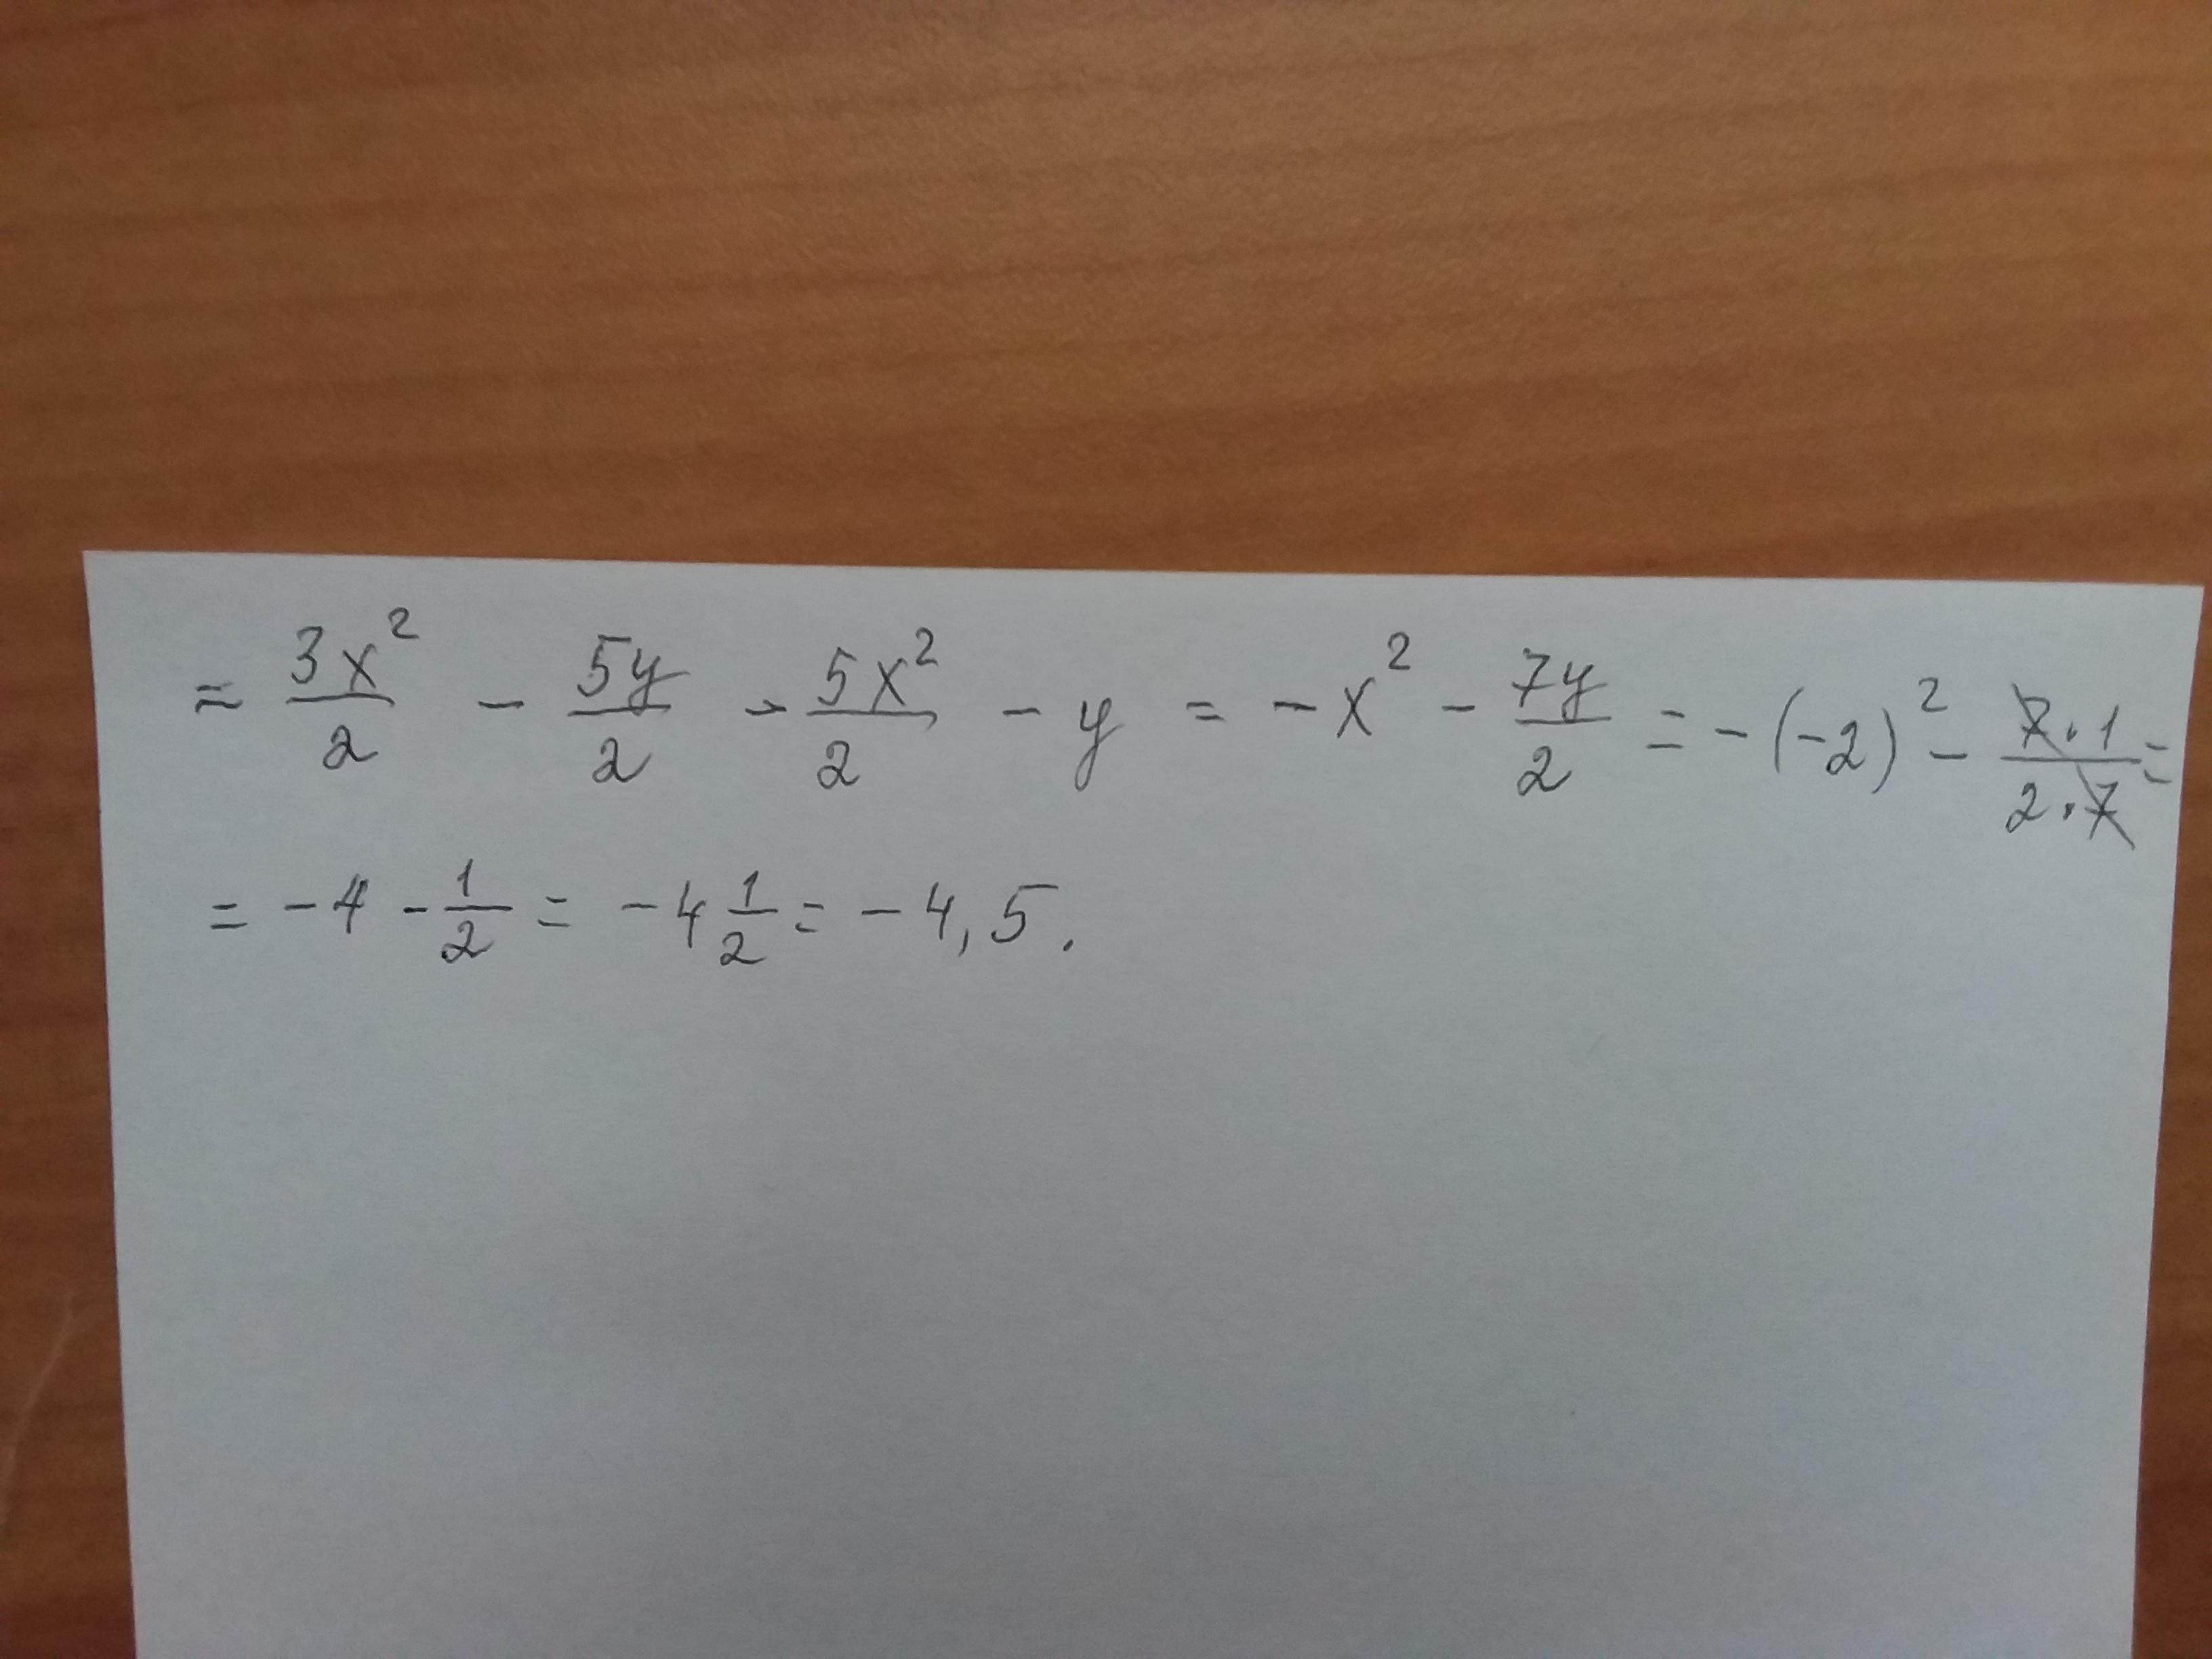 = 3x²/2 - 5y/2 - 5x²/2 - y = -x² - 7y/2 = -(-2)² - 7·1/2·7 =
= -4 - 1/2 = -4 1/2 = -4,5.